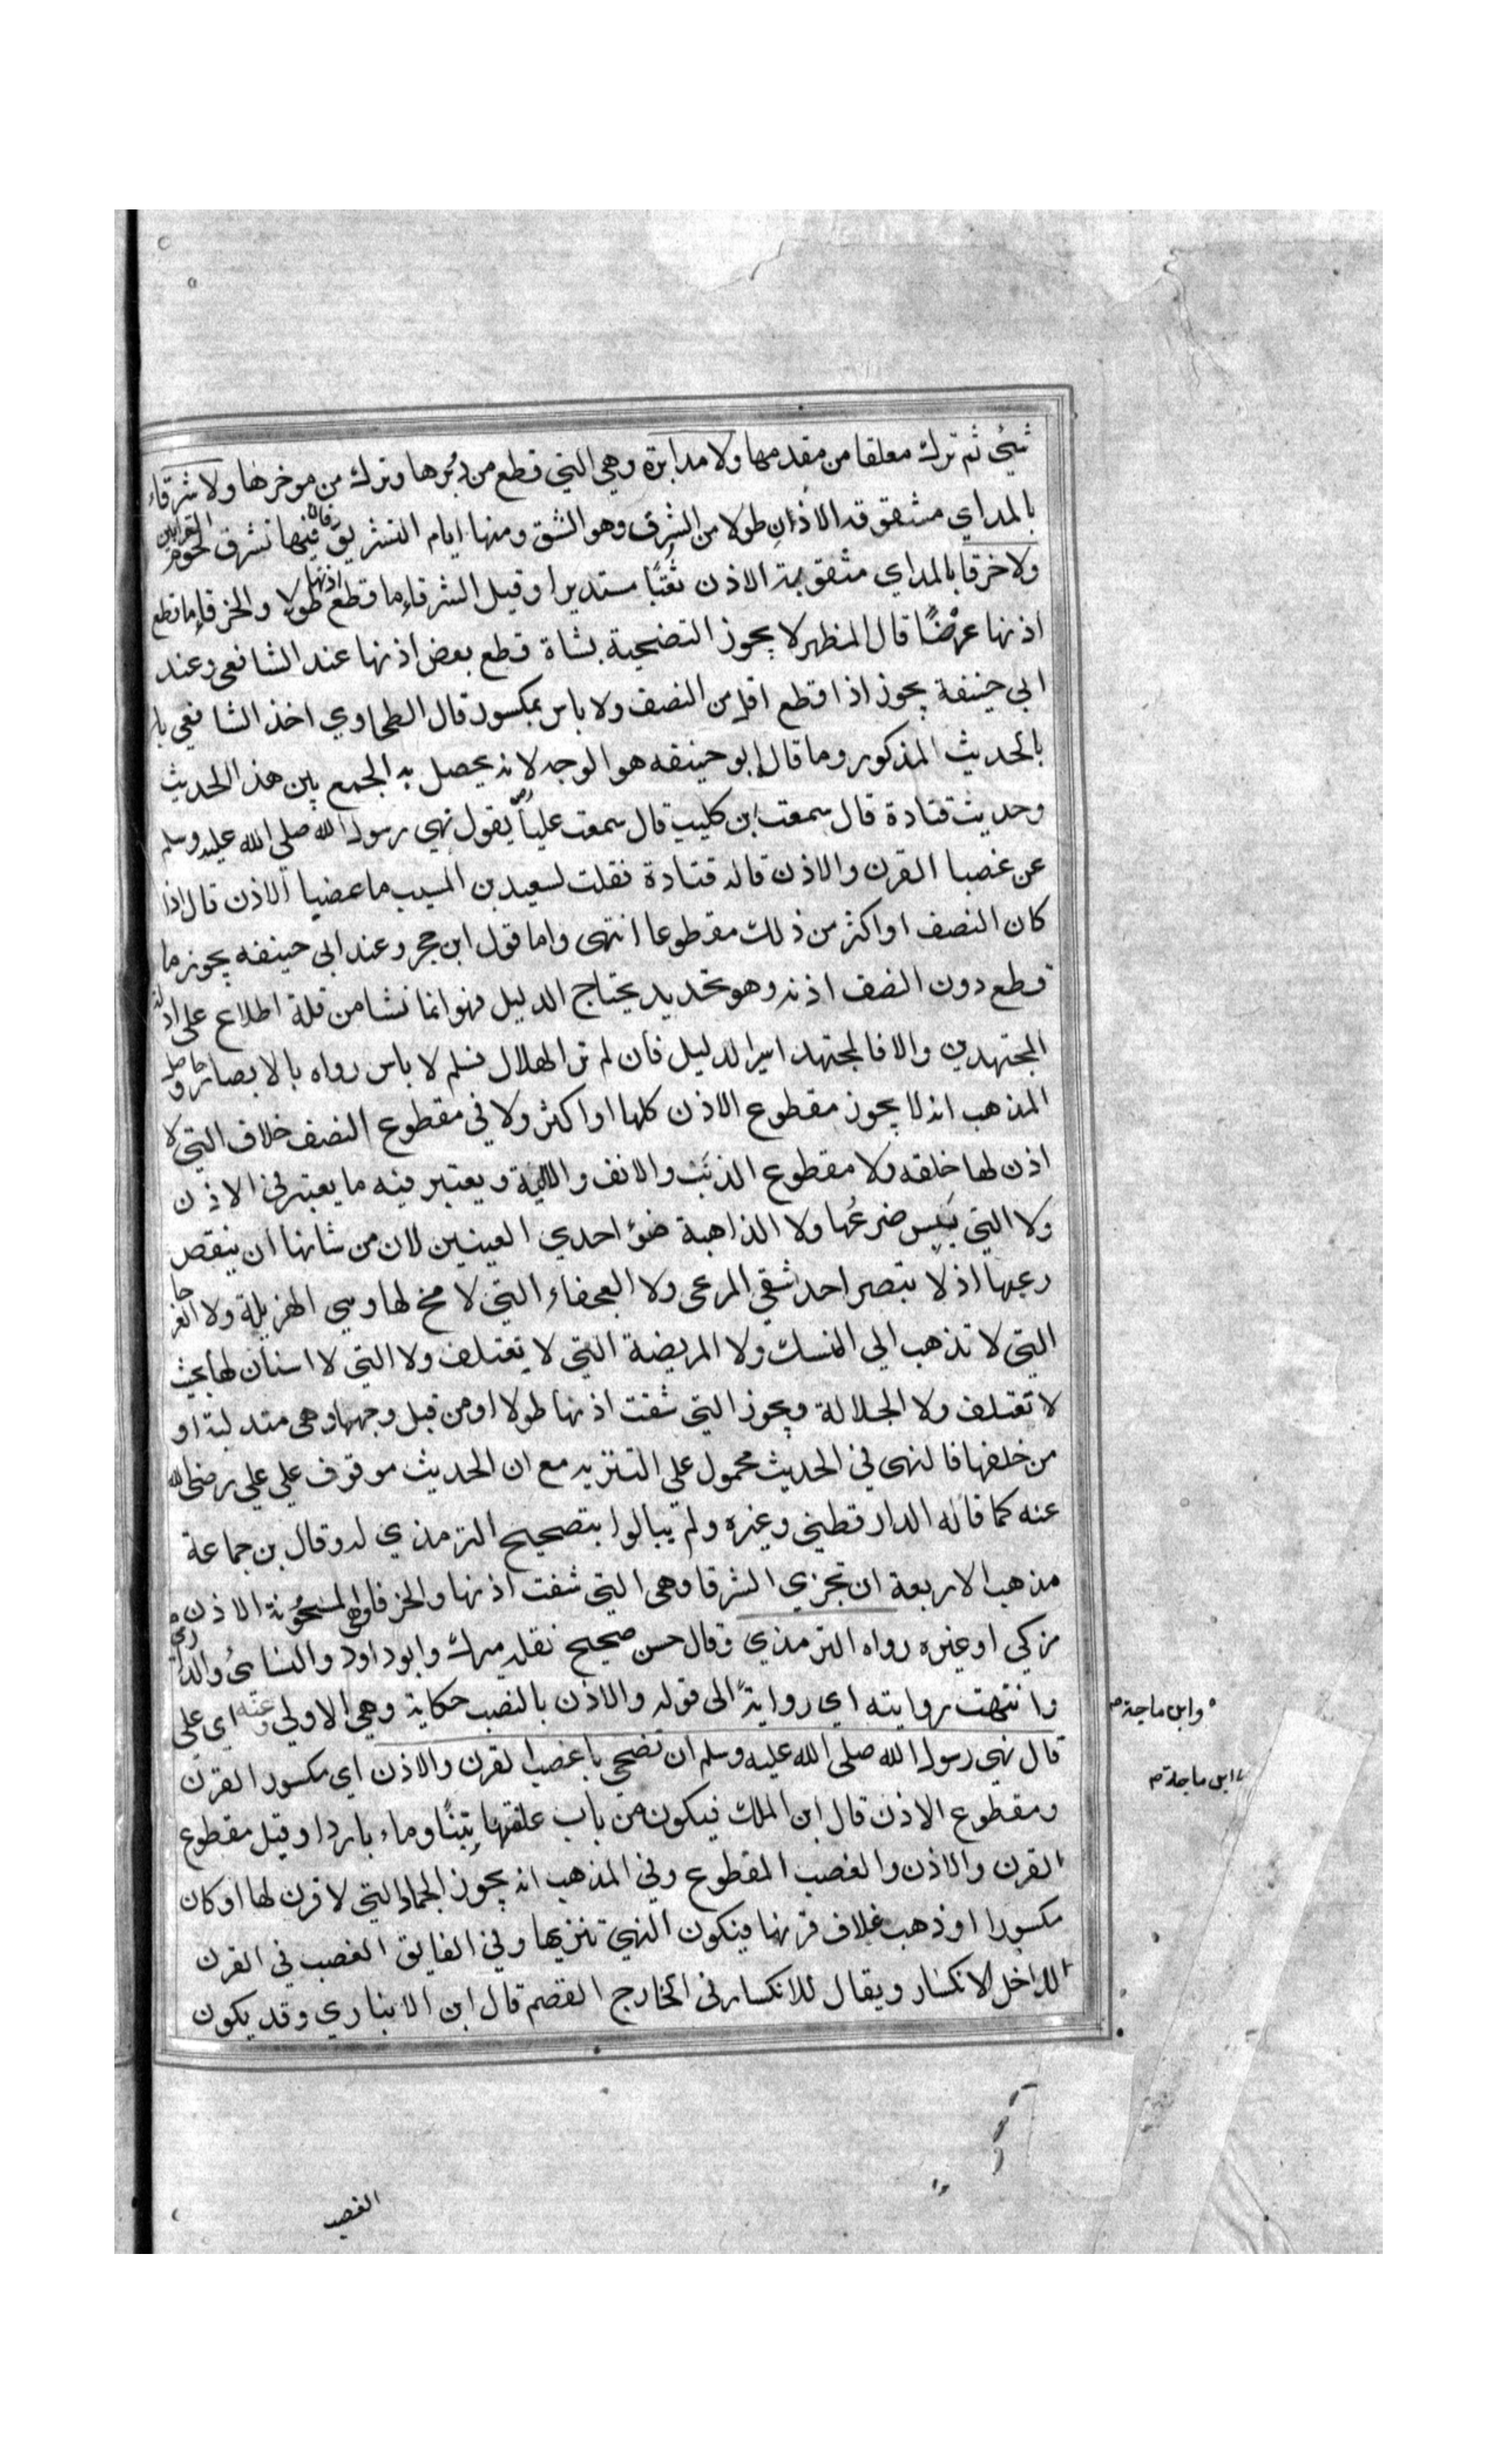 شيئ ثم ترك معلقا من مقدمها ولا مدابرة وهي التي قطع من دبرها وترك من موخرها ولا شرقاء
بالمداي مشقوقة الاذان طولا من الشرق وهو الشق ومنها ايام التشريق فان فيها تشرق لحوم القرابين
ولا خرقا بالمداي مثقوبة الاذن ثقبًا مستديرا وقيل الشرقاء ما قطع اذنها طولا والخرقاء ما قطع
اذنها عرضًا قال المظهر لا يجوز التضحية بشاة قطع بعض اذنها عند الشافعي وعند
ابي حنيفة يجوز اذا قطع اقل من النصف ولا باس بمكسور قال الطحاوي اخذ الشافعي با
بالحديث المذكور وما قال ابو حنيفه هو الوجه لانه يحصل به الجمع بين هذا الحديث
وحديث قتادة قال سمعت ابن كليب قال سمعت علياً يقول نهي رسول الله صلي الله عليه وسلم
عن غصبا القرن والاذن قال قتادة فقلت لسعيد بن المسيب ما عضبا الاذن قال اذا
كان النصف او اكثر من ذلك مقطوعا انتهى واما قول ابن حجر وعند ابي حنيفه يجوز ما
قطع دون النصف اذنه وهو تحديد يحتاج الدليل فهو انما نشا من قلة اطلاع علي ادلة
المجتهدين والا فالمجتهد اسير الدليل فان لم تر الهلال فسلم لا باس رواه بالابصار
المذهب انه لا يجوز مقطوع الاذن كلها او اكثر ولا في مقطوع النصف خلاف التي لا
اذن لها خلقه ولا مقطوع الذنب والانف والالية ويعتبر فيه ما يعتبر في الاذن
ولا التي يبس ضرعها ولا الذاهبة ضؤ احدي العينين لان من شانها ان ينقص
رعيها اذ لا تبصر احد شقي المرعى ولا العجفاء التي لا مخ لها وهي الهزيلة ولا العرجا
التي لا تذهب الي المنسك ولا المريضة التي لا تعتلف ولا التي لا اسنان لها بحيث
لا تعتلف ولا الجلالة ويجوز التي شقت اذنها طولا او من قبل وجهها وهي متدلية او
من خلفها فالنهي في الحديث محمول علي التنزيه مع ان الحديث موقوف علي علي رضي الله
عنه كما قاله الدار قطني وغيره ولم يبالوا بتصحيح الترمذي له وقال بن جماعة
مذهب الاربعة ان تجزي الشرقا وهي التي شقت اذنها والخرقا وهي الاذن
من كي او غيره رواه الترمذي وقال حسن صحيح نقله ميرك وابو داود والنسائ والدارمي
وانتهت روايته اي رواية الى قوله والاذن بالنصب حكاية وهي الاولي وعنه اي علي
قال نهي رسول الله صلى الله عليه وسلم ان نضحي باعضب القرن والاذن اي مكسور القرن
ومقطوع الاذن قال ابن الملك فيكون من باب علفتها تبنًا وماء باردا وقيل مقطوع
القرن والاذن والغصب المقطوع وفي المذهب انه يجوز الجماء التي لا قرن لها او كان
مكسورا او ذهب غلاف قرنها فيكون النهي تنزيها وفي الفايق الغصب في القرن
الداخل الانكسار ويقال للانكسار في الخارج القصم قال ابن الانباري وقد يكون
وابن ماجة
ابن ماجة
الغصب